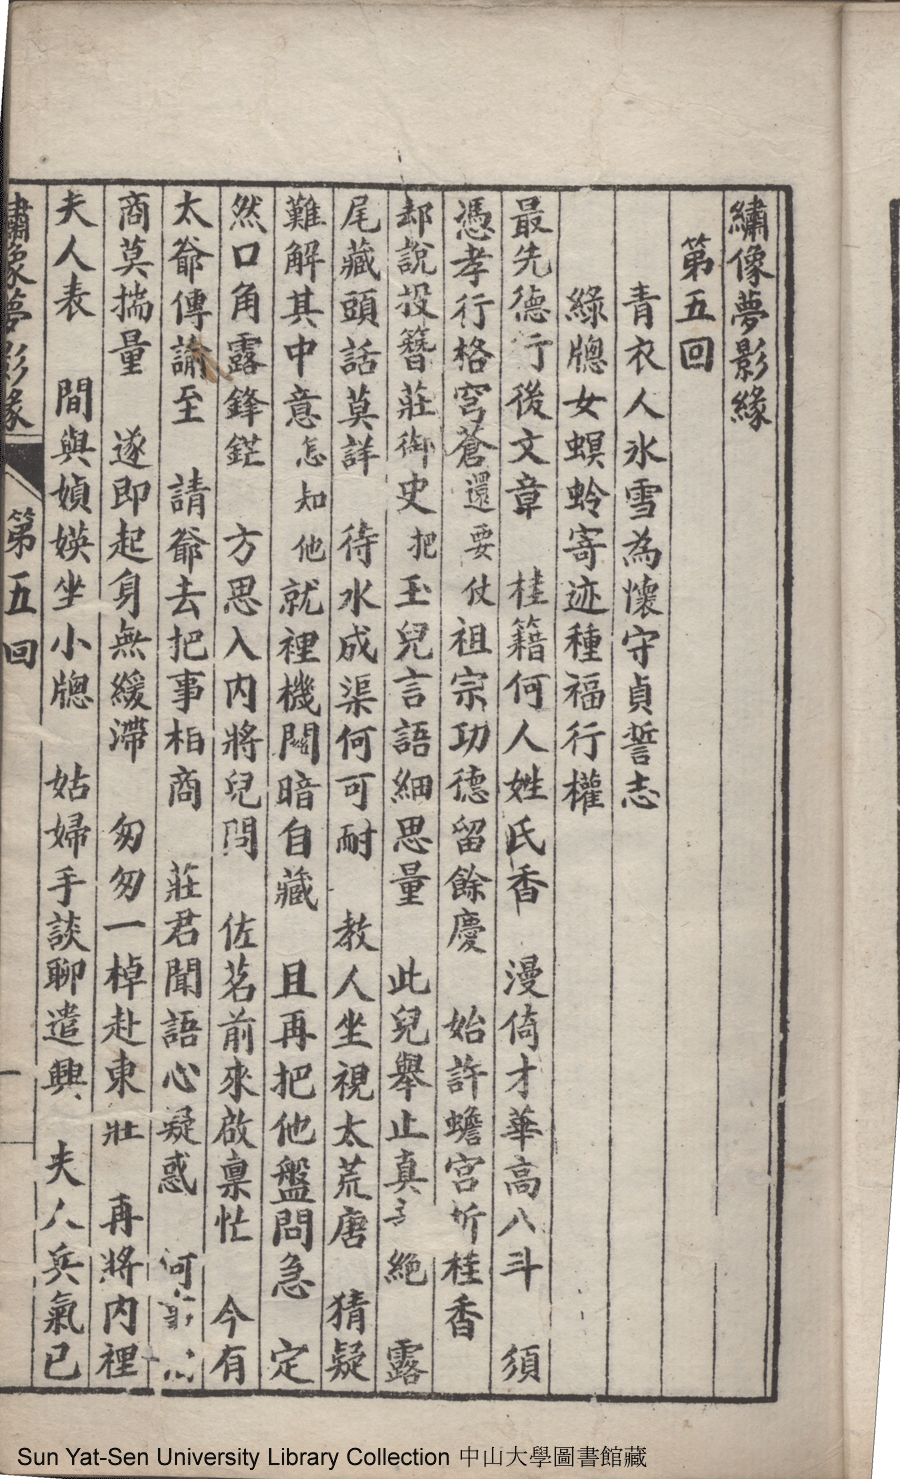 繡像夢影緣
第五回
青衣人氷雪為懷守貞誓志
綠牕女螟蛉寄迹種福行權
最先德行後文章　桂籍何人姓氏香　漫倚才華高八斗　須
憑孝行格穹蒼還要仗祖宗功德留餘慶　始許蟾宮折桂香
却說投簪莊御史把玉兒言語細思量　此兒舉止真　絕　露
尾藏頭話莫詳　待水成渠何可耐　教人坐視太荒唐　猜疑
難解其中意怎知他就裡機關暗自藏　且再把他盤問急　定
然口角露鋒鋩　方思入内將兒問　佐茗前來啟禀忙　今有
太爺傳諭至　請爺去把事相商　莊君聞語心疑惑　何
商莫揣量　遂即起身無緩滯　匆匆一棹赴東莊　再將内裡
夫人表　間與媜媖坐小牕　姑婦手談聊遣興　夫人兵氣已
繡像夢影緣　第五回　一
Sun Yat-Sen University Library Collection 中山大學圖書館藏